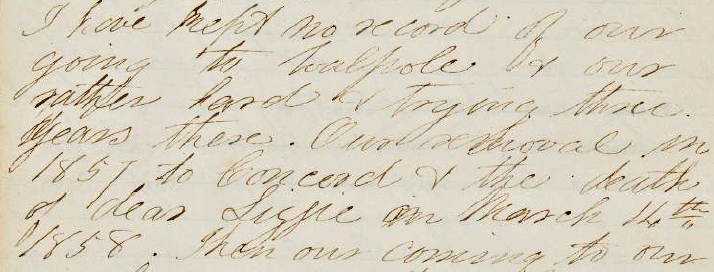 I have kept no record of our
going to Walpole & our
rather hard & trying three
years there. Our removal in
1857 to Concord & the death
of dear Lizzie on March 14th
1858. Then our coming to our